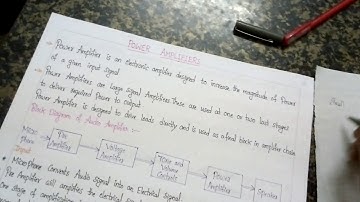 POWER AMPLIFIERS
→ Power Amplifier is an electronic amplifier designed to increase the magnitude of Power
of a given input signal
→ Power Amplifiers are large signal Amplifiers. These are used at one or two last stages
to deliver required Power to output
Power Amplifier is designed to drive loads directly and is used as a final block in amplifier chain
Block Diagram of Audio Amplifier :-
Micro Phone
Input
Pre Amplifier
Voltage Amplifier
Tone and Volume Controls
Power Amplifier
Speaker
• Microphone Converts Audio signal into an Electrical signal
Pre Amplifier will amplifies the electrical
one stage of amplification